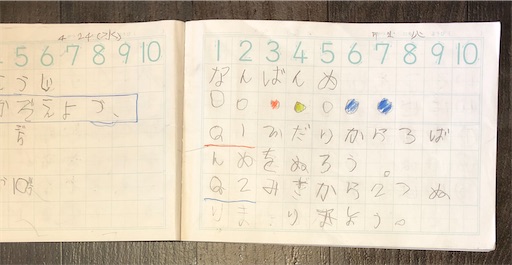 4 24(水)
5 6 7 8 9 10
こうじ
かぞえよう、
10
1 2 3 4 5 6 7 8 9 10
なんばんめ
Q1 ひだりから3ば
んめをぬろう。
Q2 みぎから2つぬ
りましょう。